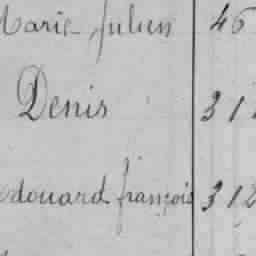 Marie Julien 46
Denis 31
Edouard françois 312